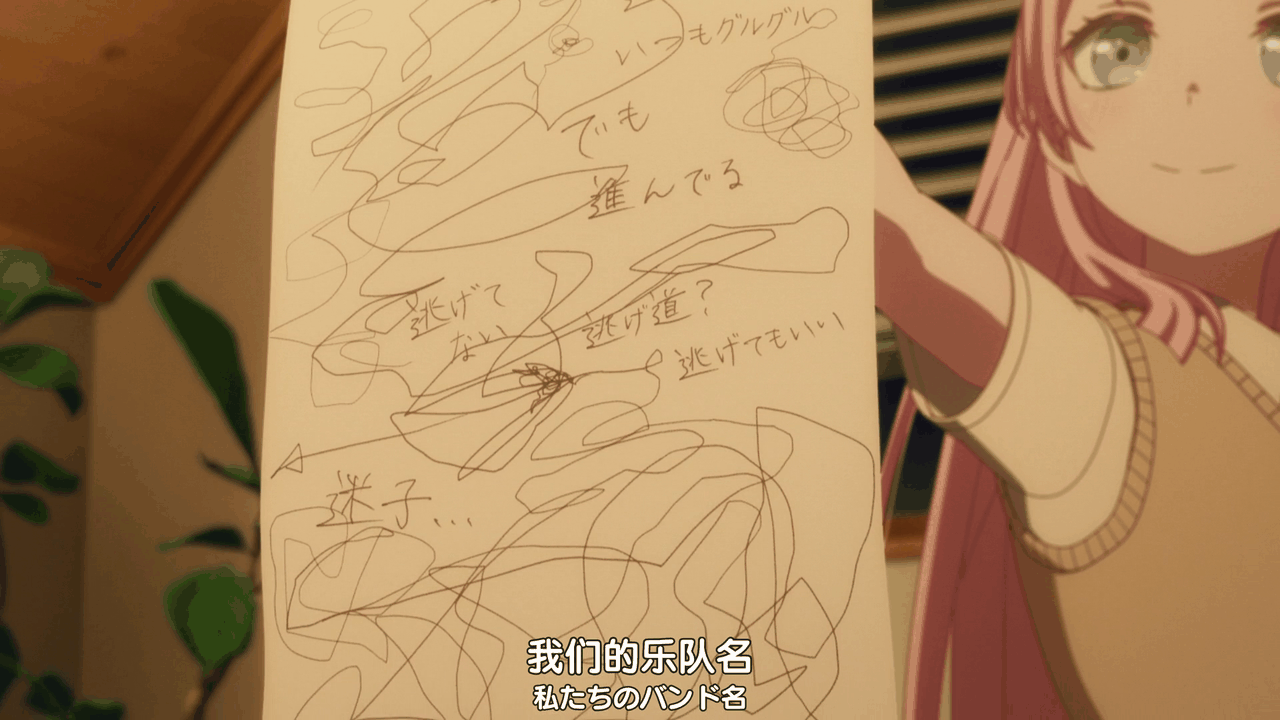 いつもグルグル
でも
進んでる
逃げて
ない
逃げ道？
逃げてもいい
迷子...
我们的乐队名
私たちのバンド名